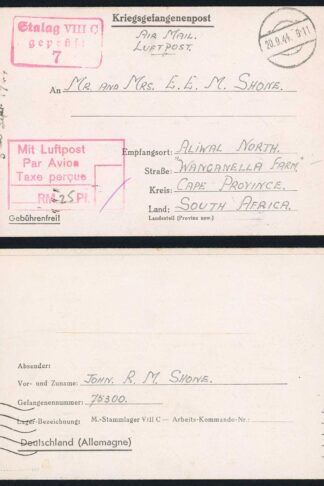 Kriegsgefangenenpost
Stalag VIII C
geprüft
7
AIR MAIL.
LUFTPOST.
20.9.44. 9-11
An MR. AND MRS. E. E. M. SHONE.
Mit Luftpost
Par Avion
Taxe perçue
RM 25 Pf.
Gebührenfrei!
Empfangsort: ALIWAL NORTH.
Straße: "WANGANELLA FARM,"
Kreis: CAPE PROVINCE.
Land: SOUTH AFRICA.
Landesteil (Provinz usw.)
Absender:
Vor- und Zuname: JOHN. R. M. SHONE.
Gefangenennummer: 75300.
Lager-Bezeichnung: M.-Stammlager VIII C — Arbeits-Kommando-Nr.:
Deutschland (Allemagne)